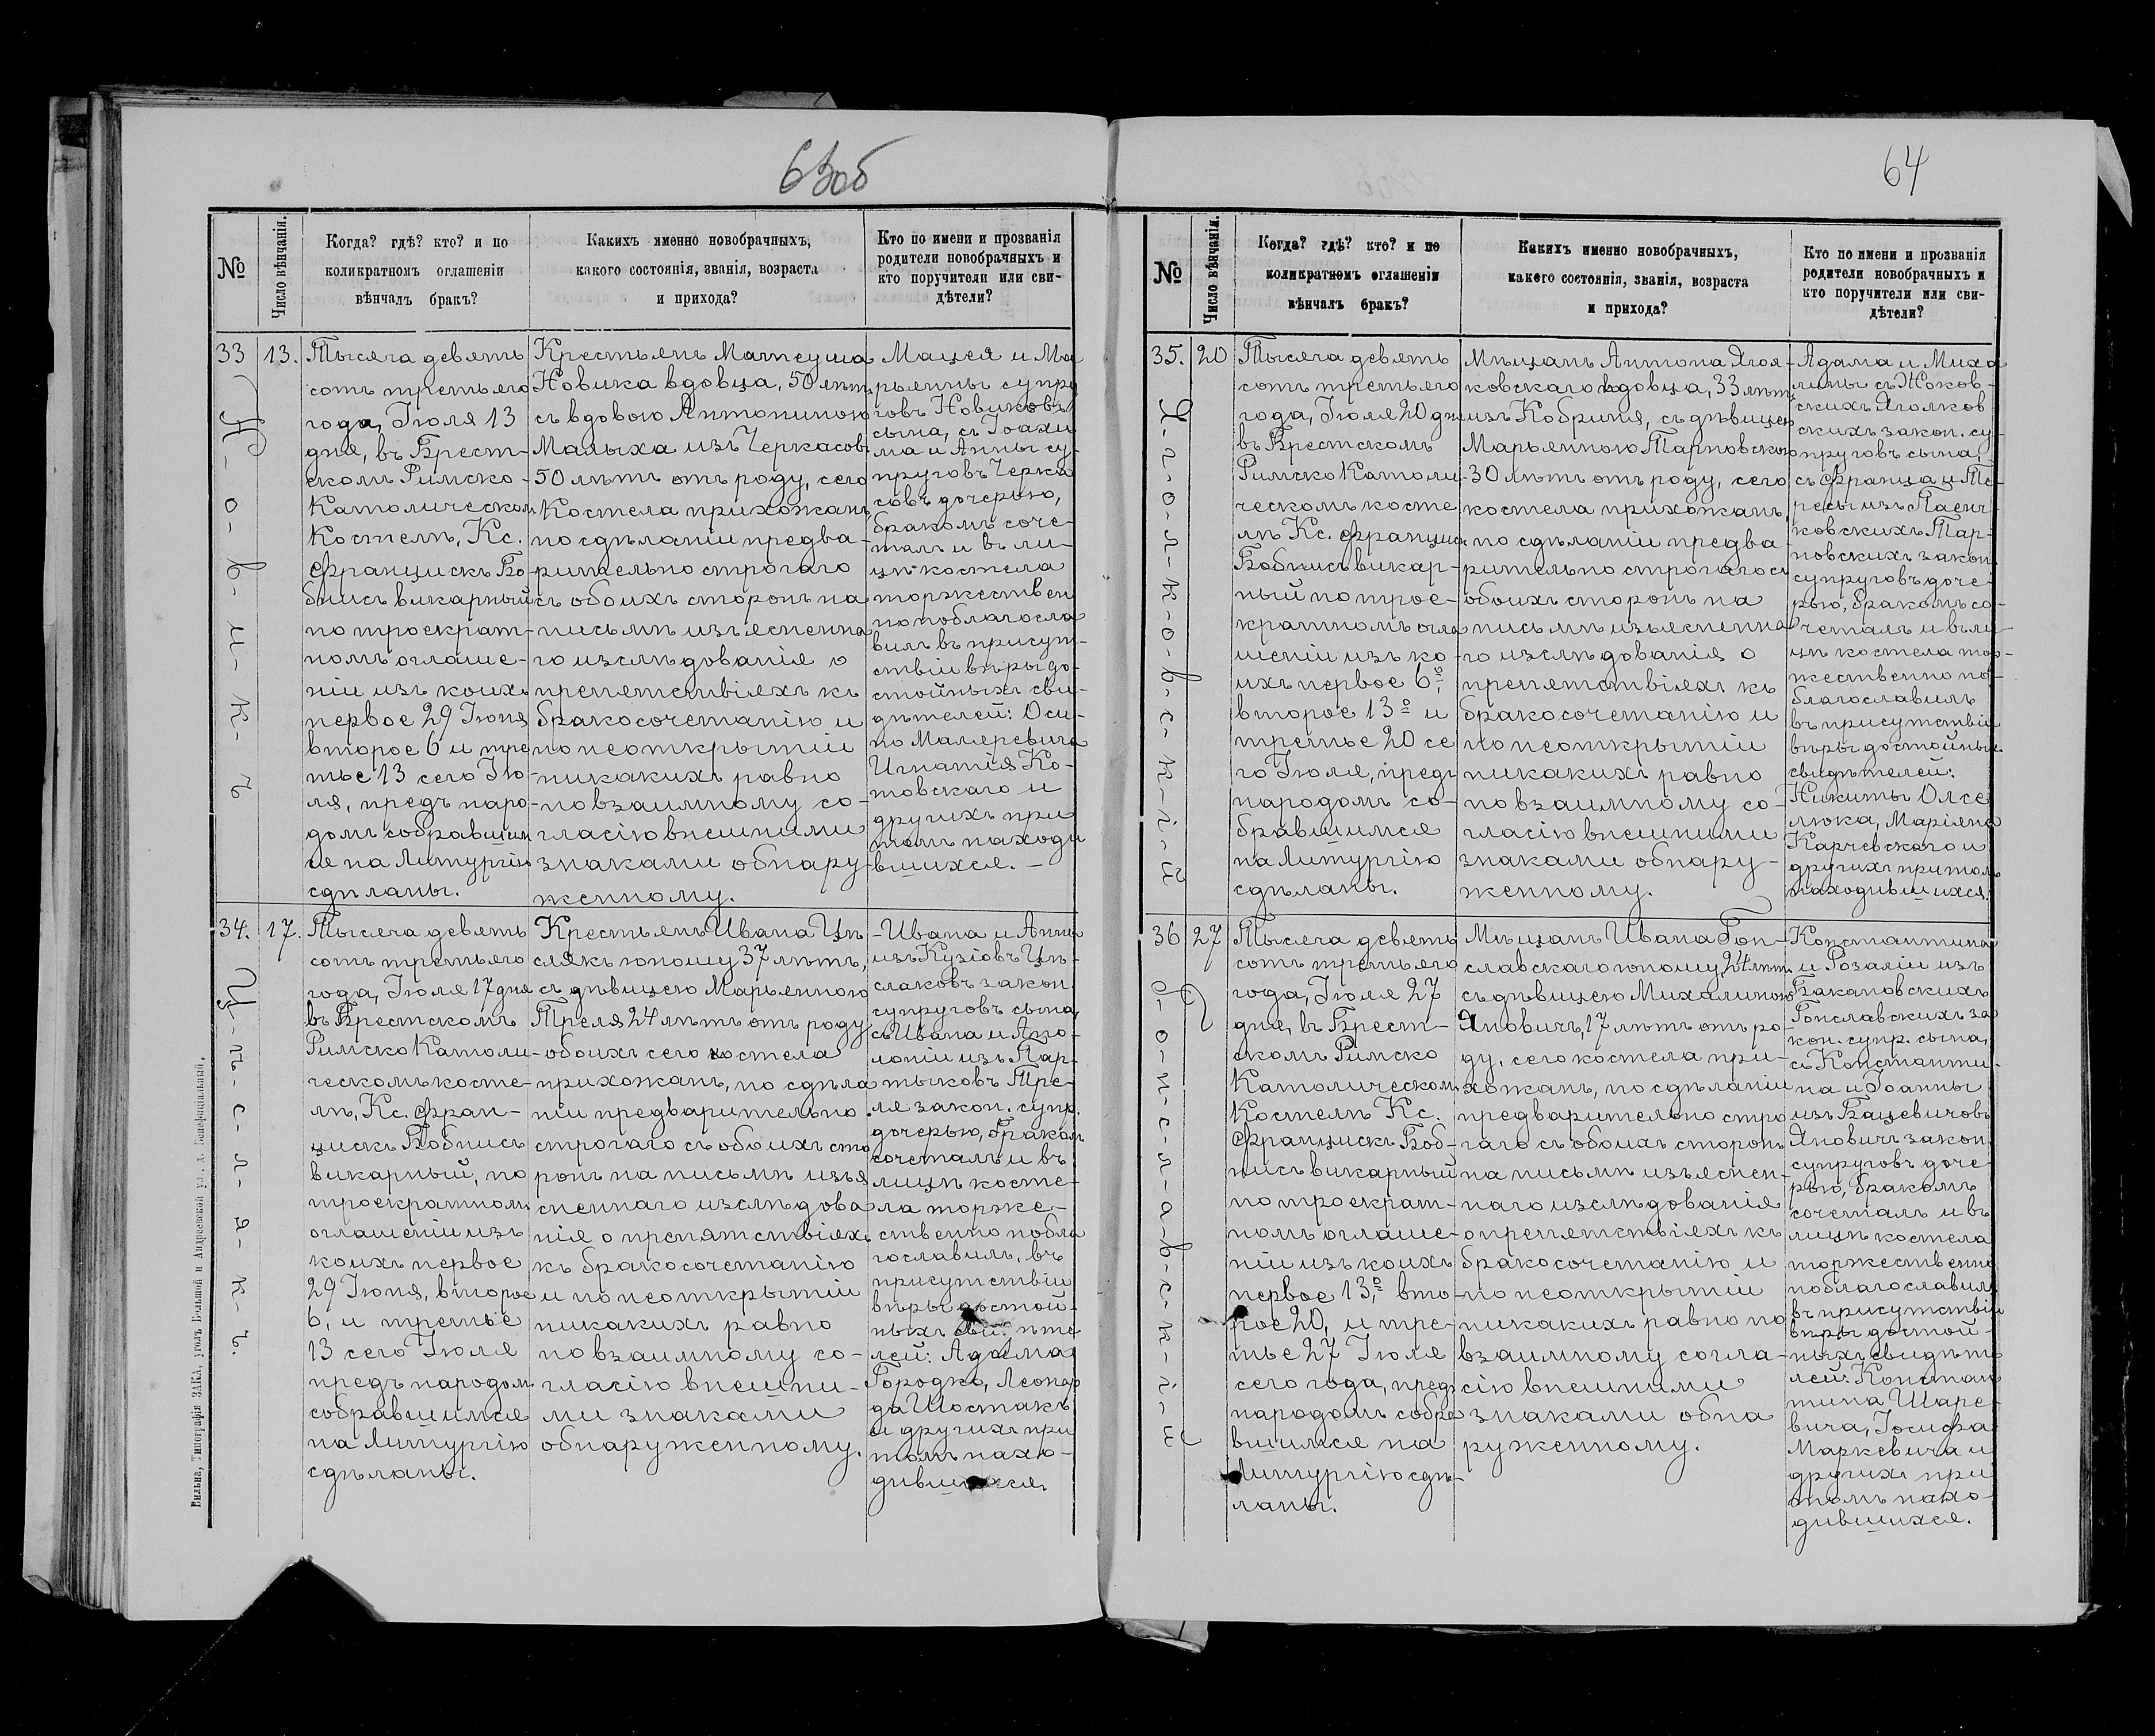 63об
№
Число вѣнчанія.
Когда? гдѣ? кто? и по
коликратномъ оглашеніи
вѣнчалъ бракъ?
Какихъ именно новобрачныхъ,
какого состоянія, званія, возраста
и прихода?
Кто по имени и прозванія
родители новобрачныхъ и
кто поручители или сви-
дѣтели?
33
13.
Н-о-в-и-к-ъ
Тысяча девять
сотъ третьяго
года, Іюля 13
дня, въ Брест-
скомъ Римско-
Католическомъ
Костелѣ, Кс.
Францискъ Бо-
бнисъ викарный
по троекрат-
номъ оглаше-
ніи изъ коихъ
первое 29 Іюня
второе 6 и тре
тье 13 сего Ію
ля, предъ наро-
домъ собравшим
ся на Литургію
сдѣланы.
Крестьянъ Матеуша
Новика вдовца, 50 лѣтъ
съ вдовою Антониною
Малыха изъ Черкасовъ
50 лѣтъ отъ роду, сего
Костела прихожанъ,
по сдѣланіи предва-
рительно строгаго
съ обоихъ сторонъ на
письмѣ изъясненна
го изслѣдованія о
препятствіяхъ къ
бракосочетанію и
по неоткрытіи
никакихъ равно
по взаимному со-
гласію внешними
знаками обнару-
женному.
Мацея и Ма
рьянны супру
говъ Новиковъ
сына, съ Іоахи
ма и Анны су-
пруговъ Черка
совъ дочерью,
бракомъ соче-
талъ и въ ли-
цѣ костела
торжествен
но поблагосла
вилъ въ присут-
ствіи вѣры до-
стойныхъ сви-
дѣтелей: Оси-
по Маляревича
Игнатія Ко-
товскаго и
другихъ при
томъ находи
вшихся.-
34.
17.
Ц-ѣ-с-л-я-к-ъ.
Тысяча девять
сотъ третьяго
года, Іюля 17 дня
въ Брестскомъ
Римско Католи-
ческомъ косте-
лѣ, Кс. Фран-
цискъ Бобнисъ
викарный, по
троекратномъ
оглашеніи изъ
коихъ первое
29 Іюня, второе
6, и третьё
13 сего Іюля
предъ народомъ
собравшимся
на Литургію
сдѣланы.
Крестьянъ Ивана Цѣ
слякъ юношу 37 лѣтъ,
съ дѣвицею Марьянною
Треля 24 лѣтъ отъ роду
обоихъ сего костела
прихожанъ, по сдѣла
ніи предварительно
строгаго съ обоихъ сто
ронъ на письмѣ изъя
сненнаго изслѣдова
нія о препятствіяхъ
къ бракосочетанію
и по неоткрытіи
никакихъ равно
по взаимному со-
гласію внешни-
ми знаками
обнаруженному.
Ивана и Анны
изъ Кузіовъ Цѣ-
сляковъ закон.
супруговъ сына,
съ Ивана и Апо-
лоніи изъ Пар-
тыковъ Тре-
ля закон. супр.
дочерью, бракомъ
сочеталъ и въ
лицѣ косте-
ла торже-
ственно побла
гославилъ, въ
присутствіи
вѣры достой-
ныхъ свидѣте
лей: Адама
Городко, Леонар
да Шостакъ
и другихъ при
томъ нахо-
дившихся.
Вильна, Типографія ЗАКА, уголъ Большой и Андреевской ул., д. Бенефиціальный.
64
№
Число вѣнчанія.
Когда? гдѣ? кто? и по
коликратномъ оглашеніи
вѣнчалъ бракъ?
Какихъ именно новобрачныхъ,
какого состоянія, званія, возраста
и прихода?
Кто по имени и прозванія
родители новобрачныхъ и
кто поручители или сви-
дѣтели?
35.
20
Я-г-о-л-к-о-в-с-к-і-й
Тысяча девять
сотъ третьяго
года, Іюля 20 дня
въ Брестскомъ
Римско Католи-
ческомъ косте
лѣ Кс. Францискъ
Бобнисъ викар-
ный по трое-
кратномъ огла
шеніи изъ ко-
ихъ первое 6º,
второе 13º и
третье 20 се
го Іюля, предъ
народомъ со-
бравшимся
на Литургію
сдѣланы.
Мѣщанъ Антона Ягол-
ковскаго вдовца, 33 лѣтъ
изъ Кобриня, съ дѣвицею
Марьянною Тарновскою
30 лѣтъ отъ роду, сего
костела прихожанъ,
по сдѣланіи предва
рительно строгаго съ
обоихъ сторонъ на
письмѣ изъясненна
го изслѣдованія о
препятствіяхъ къ
бракосочетанію и
по неоткрытіи
никакихъ равно
по взаимному со-
гласію внешними
знаками обнару-
женному.
Адама и Миха
лины съ Жоков-
скихъ Яголков
скихъ закон. су-
пруговъ сына,
съ Франца и Те-
ресы изъ
Тар-
новскихъ закон
супруговъ доче-
рью, бракомъ со-
четалъ и въ ли
цѣ костела тор-
жественно по-
благославилъ
въ присутствіи
вѣры достойныхъ
свидѣтелей:
Никиты Олсе
люка, Маріяна
Карчевскаго и
другихъ притомъ
находившихся.
36
27
Г-о-н-с-л-а-в-с-к-і-й
Тысяча девять
сотъ третьяго
года, Іюля 27
дня, въ Брест-
скомъ Римско
Католическомъ
Костелѣ Кс.
Францискъ Боб-
нисъ викарный
по троекрат-
номъ оглаше-
ніи изъ коихъ
первое 13º, вто-
рое 20, и тре-
тье 27 Іюля
сего года, предъ
народомъ собра
вшимся на
Литургію сдѣ-
ланы.
Мѣщанъ Ивана Гон-
славскаго юношу, 24 лѣт.
съ дѣвицею Михалиною
Яновичъ, 17 лѣтъ отъ ро-
ду, сего костела при-
хожанъ, по сдѣланіи
предварительно стро
гаго съ обоихъ сторонъ
на письмѣ изъяснен-
наго изслѣдованія
о препятствіяхъ къ
бракосочетанію и
по неоткрытіи
никакихъ равно по
взаимному согла-
сію внешними
знаками обна
руженному.
Константина
и Розаліи изъ
Бакановскихъ
Гонславскихъ за
кон. супр. сына,
съ Константи-
на и Іоанны
изъ Бацевичовъ
Яновичъ закон
супруговъ доче-
рью, бракомъ
сочеталъ и въ
лицѣ костела
торжественно
поблагославилъ
въ присутствіи
вѣры достой-
ныхъ свидѣте
лей: Констан
тина Шаре-
вича, Іосифа
Маркевича и
другихъ при
томъ нахо-
дившихся.